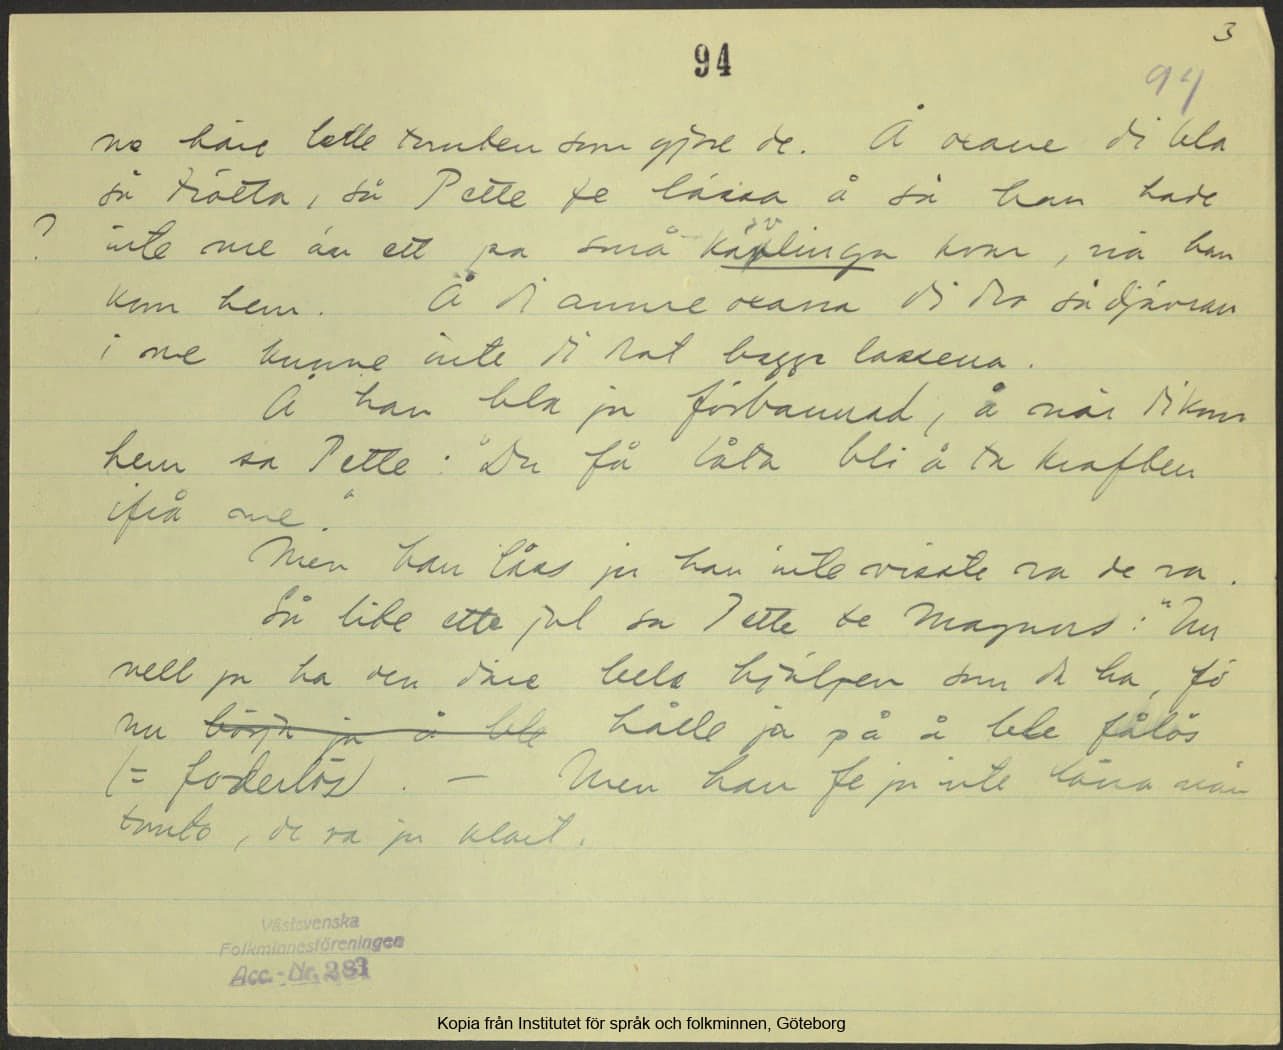 3
94
94
va häre lelle tomten som gjore de. Å oxane di bla
så trötta, så Pelle fe lässa å så han hade
? inte me än ett pa små kävlinga kvar, nä han
kom hem. Å di annre oxana di dro så djävran
i me kunne inte di drat bägge lassena.
Å han bla ju förbannad, å när di kom
hem sa Pelle: "Du få låta bli å ta kraften
ifrå me."
Men han låss ju han inte visste va de va.
Så lide ette jul sa Pelle te Magnus: "Nu
vell ja ha den däre hela hjälpen som du ha, fö
nu börja ja å ble hålle ja på å ble fålös
(= foderlös). — Men han fe ju inte låna nån
tomte, de va ju klart.
Västsvenska
Folkminnesföreningen
Acc.-Nr. 283
Kopia från Institutet för språk och folkminnen, Göteborg